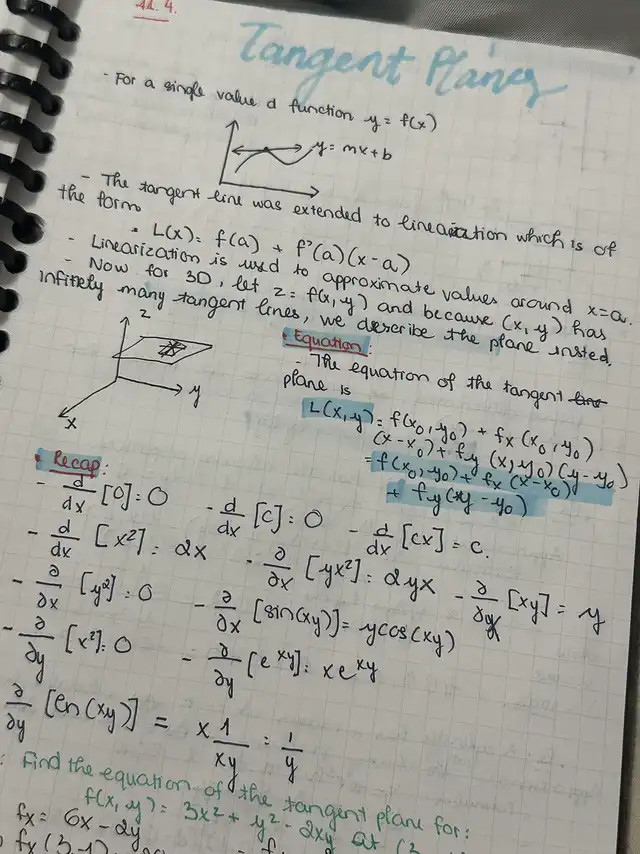 11.4.
Tangent Planes
- For a single value d function y = f(x)
y = mx + b
- The tangent line was extended to linearization which is of
the form
• L(x) = f(a) + f'(a)(x-a)
- Linearization is used to approximate values around x=a.
- Now for 3D, let z = f(x, y) and because (x, y) has
infinitely many tangent lines, we describe the plane insted.
z
y
x
• Equation:
- The equation of the tangent line
plane is
L(x, y) = f(x₀, y₀) + fx (x₀, y₀)
(x-x₀) + fy (x, y₀) (y-y₀)
= f(x₀, y₀) + fx (x-x₀)
+ fy (xy - y₀)
• Recap:
- d/dx [0] = 0 - d/dx [C] = 0 - d/dx [cx] = c.
- d/dx [x²] = 2x - ∂/∂x [yx²] = 2yx - ∂/∂x [xy] = y
- ∂/∂x [y²] = 0 - ∂/∂x [sin(xy)] = ycos(xy)
- ∂/∂y [x²] = 0 - ∂/∂y [e^xy] = xe^xy
∂/∂y [ln(xy)] = x 1/xy = 1/y
: Find the equation of the tangent plane for:
f(x, y) = 3x² + y² - 2xy at (3
fx = 6x - 2y
fx (3,-1)